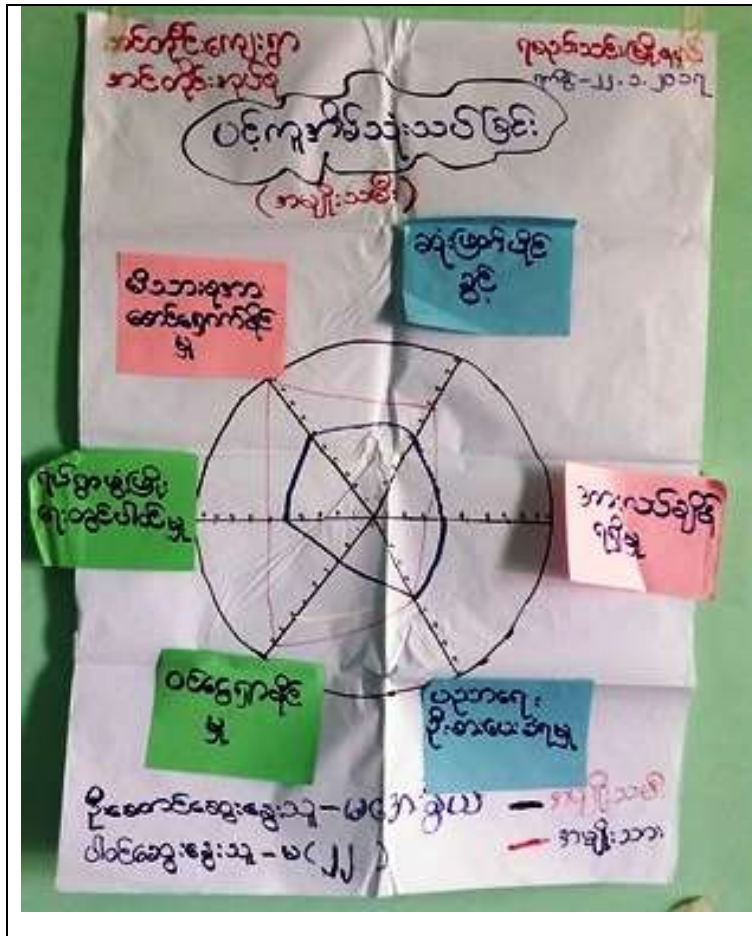 အင်တိုင်းကျေးရွာ
အင်တိုင်းအုပ်စု
ရမည်းသင်းမြို့နယ်
ရက်စွဲ-၂၂.၁.၂၀၁၇
ပင့်ကူအိမ်သုံးသပ်ခြင်း
(အမျိုးသမီး)
ဆုံးဖြတ်ပိုင်
ခွင့်
မိသားစုအား
စောင့်ရှောက်နိုင်
မှု
ရပ်ရွာဖွံ့ဖြိုး
ရေးတွင်ပါဝင်မှု
အားလပ်ချိန်
ရရှိမှု
ဝင်ငွေရှာနိုင်
မှု
ပညာရေး
ဦးစားပေးခံရမှု
ဦးဆောင်ဆွေးနွေးသူ-မ
အမျိုးသမီး
ပါဝင်ဆွေးနွေးသူ-မ(၂၂)
အမျိုးသား